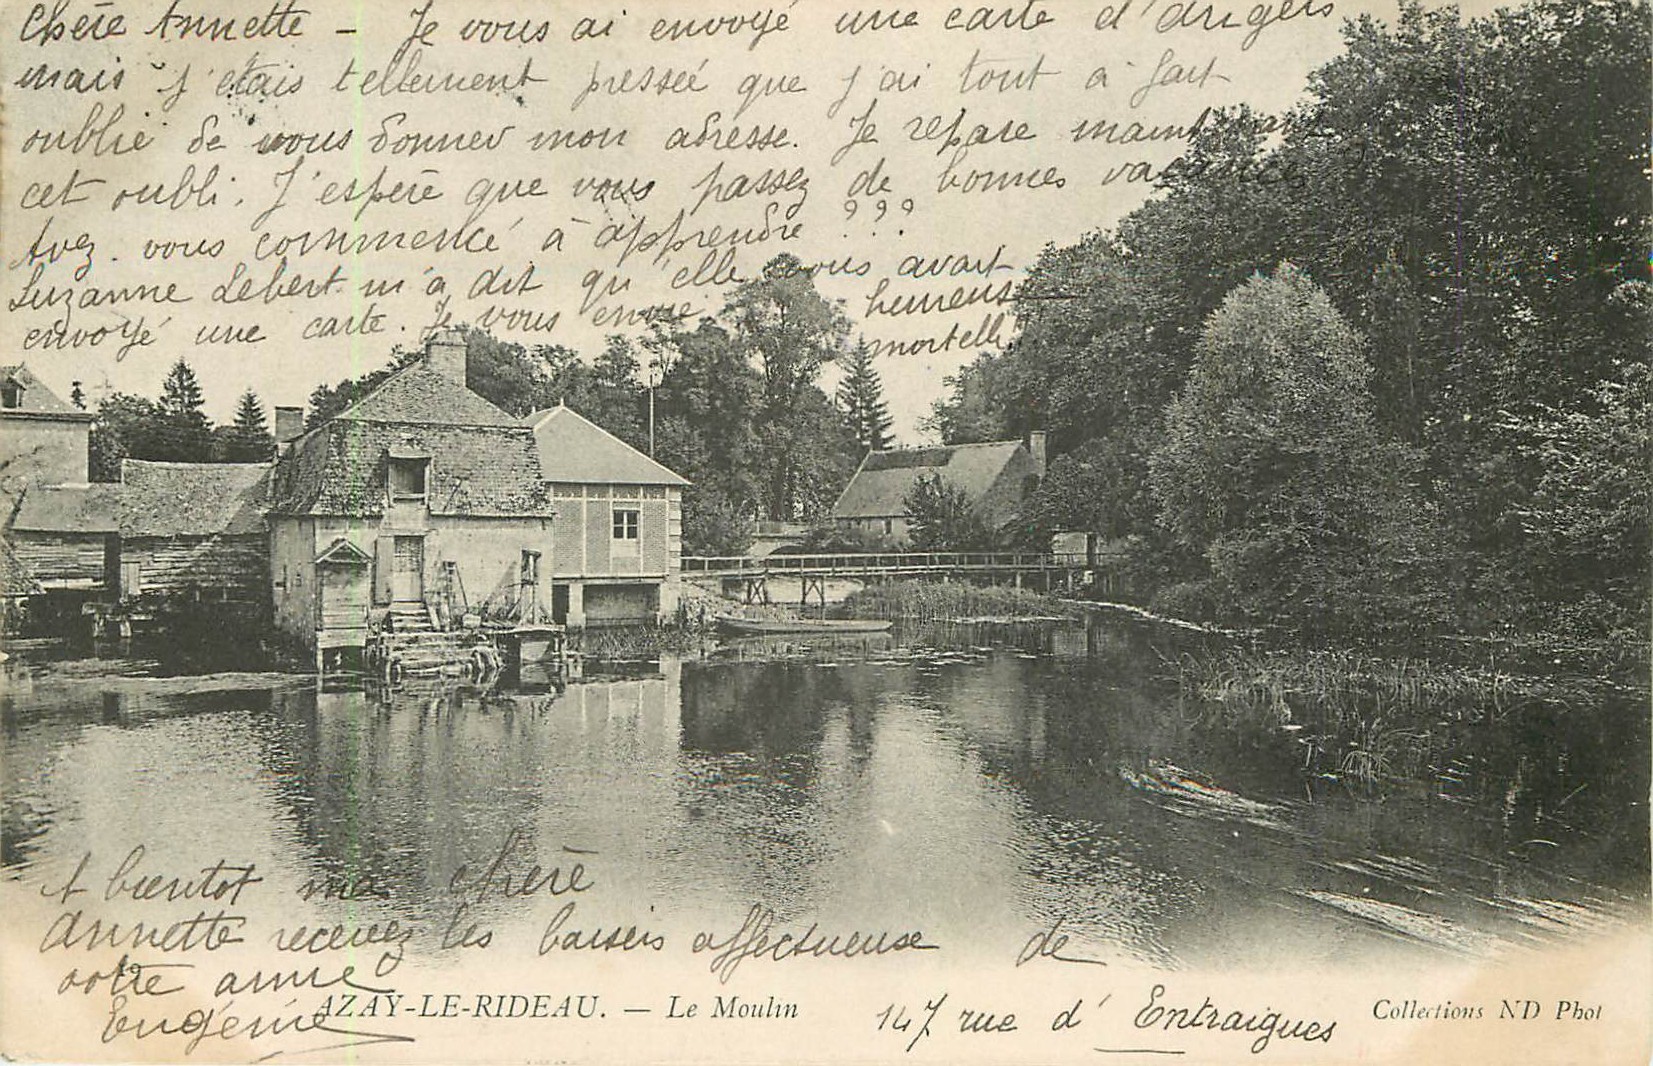 Chère Annette - Je vous ai envoyé une carte d'Angers
mais j'étais tellement pressée que j'ai tout à fait
oublié de vous donner mon adresse. Je repare maintenant
cet oubli. J'espère que vous passez de bonnes vacances ?
Avez-vous commencé à apprendre ???
Suzanne Lebert m'a dit qu'elle vous avait
envoyé une carte. Je vous envie heureuse
mortelle!
A bientot ma chère
Annette recevez les baisers affectueuse de
votre amie
Eugénie
AZAY-LE-RIDEAU. — Le Moulin
147 rue d'Entraigues
Collections ND Phot